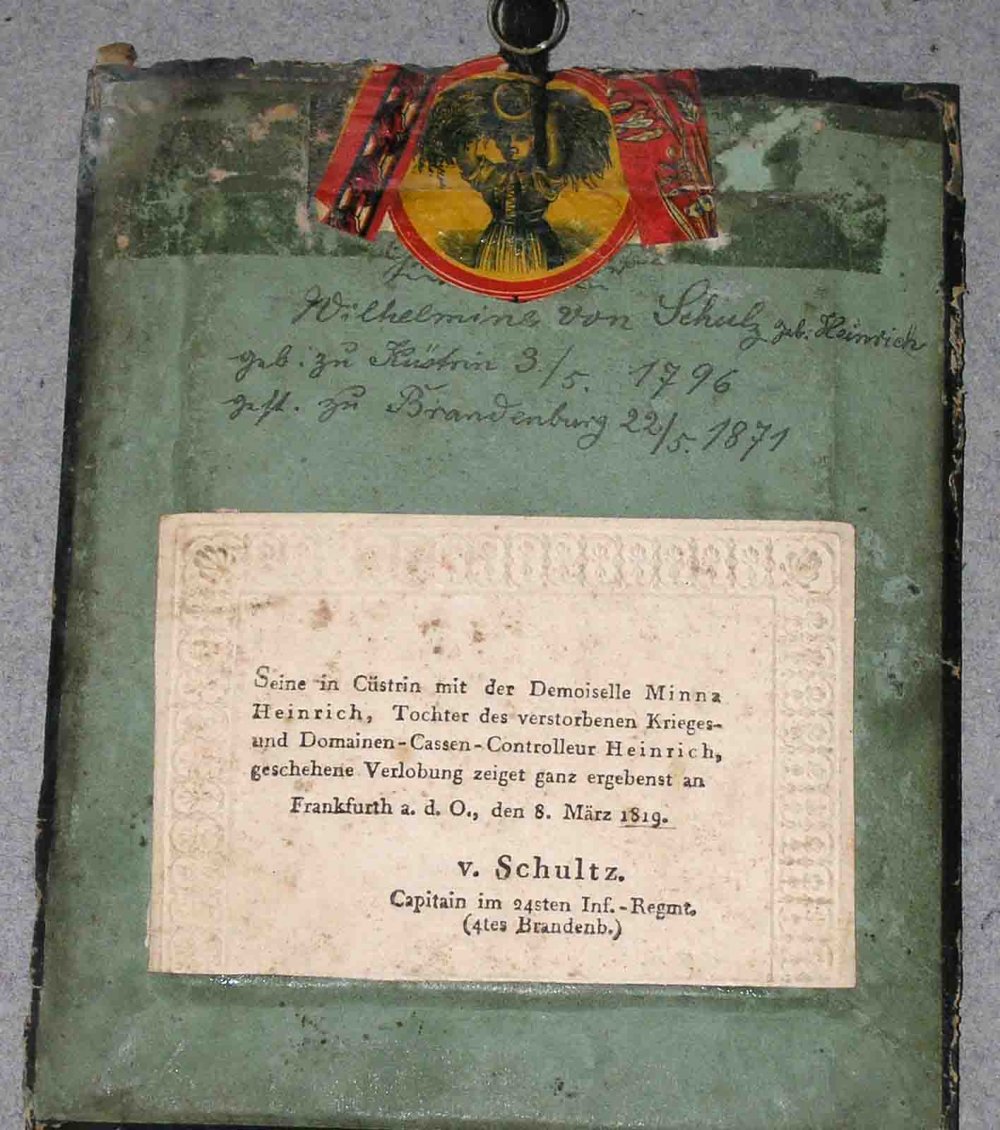 Wilhelmine von Schulz geb. Heinrich
geb. zu Küstrin 3/5. 1796
gest. zu Brandenburg 22/5. 1871
Seine in Cüstrin mit der Demoiselle Minna
Heinrich, Tochter des verstorbenen Krieges-
und Domainen-Cassen-Controlleur Heinrich,
geschehene Verlobung zeiget ganz ergebenst an
Frankfurth a. d. O., den 8. März 1819.
v. Schultz.
Capitain im 24sten Inf.-Regmt.
(4tes Brandenb.)